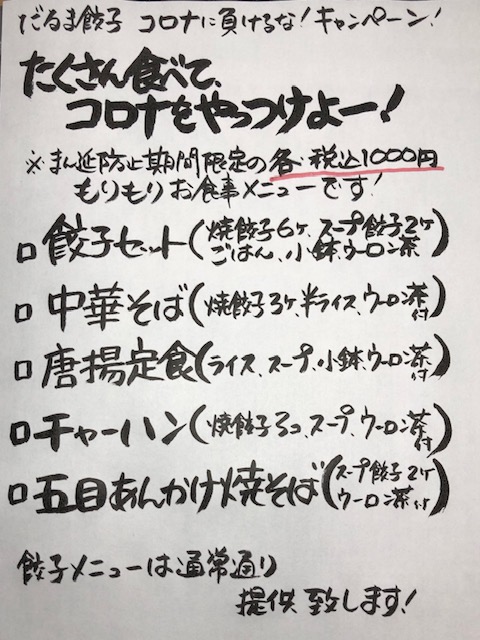 だるま餃子 コロナに負けるな!キャンペーン!
たくさん食べて、
コロナをやっつけよー!
※まん延防止期間限定の各税込1000円
もりもりお食事メニューです!
□ 餃子セット(焼餃子6ヶ、スープ餃子2ヶ
ごはん、小鉢、ウーロン茶)
□ 中華そば(焼餃子3ヶ、半ライス、ウーロン茶付)
□ 唐揚定食(ライス、スープ、小鉢、ウーロン茶付)
□ チャーハン(焼餃子3コ、スープ、ウーロン茶付)
□ 五目あんかけ焼そば(スープ餃子2ヶ
ウーロン茶付)
餃子メニューは通常通り
提供致します!